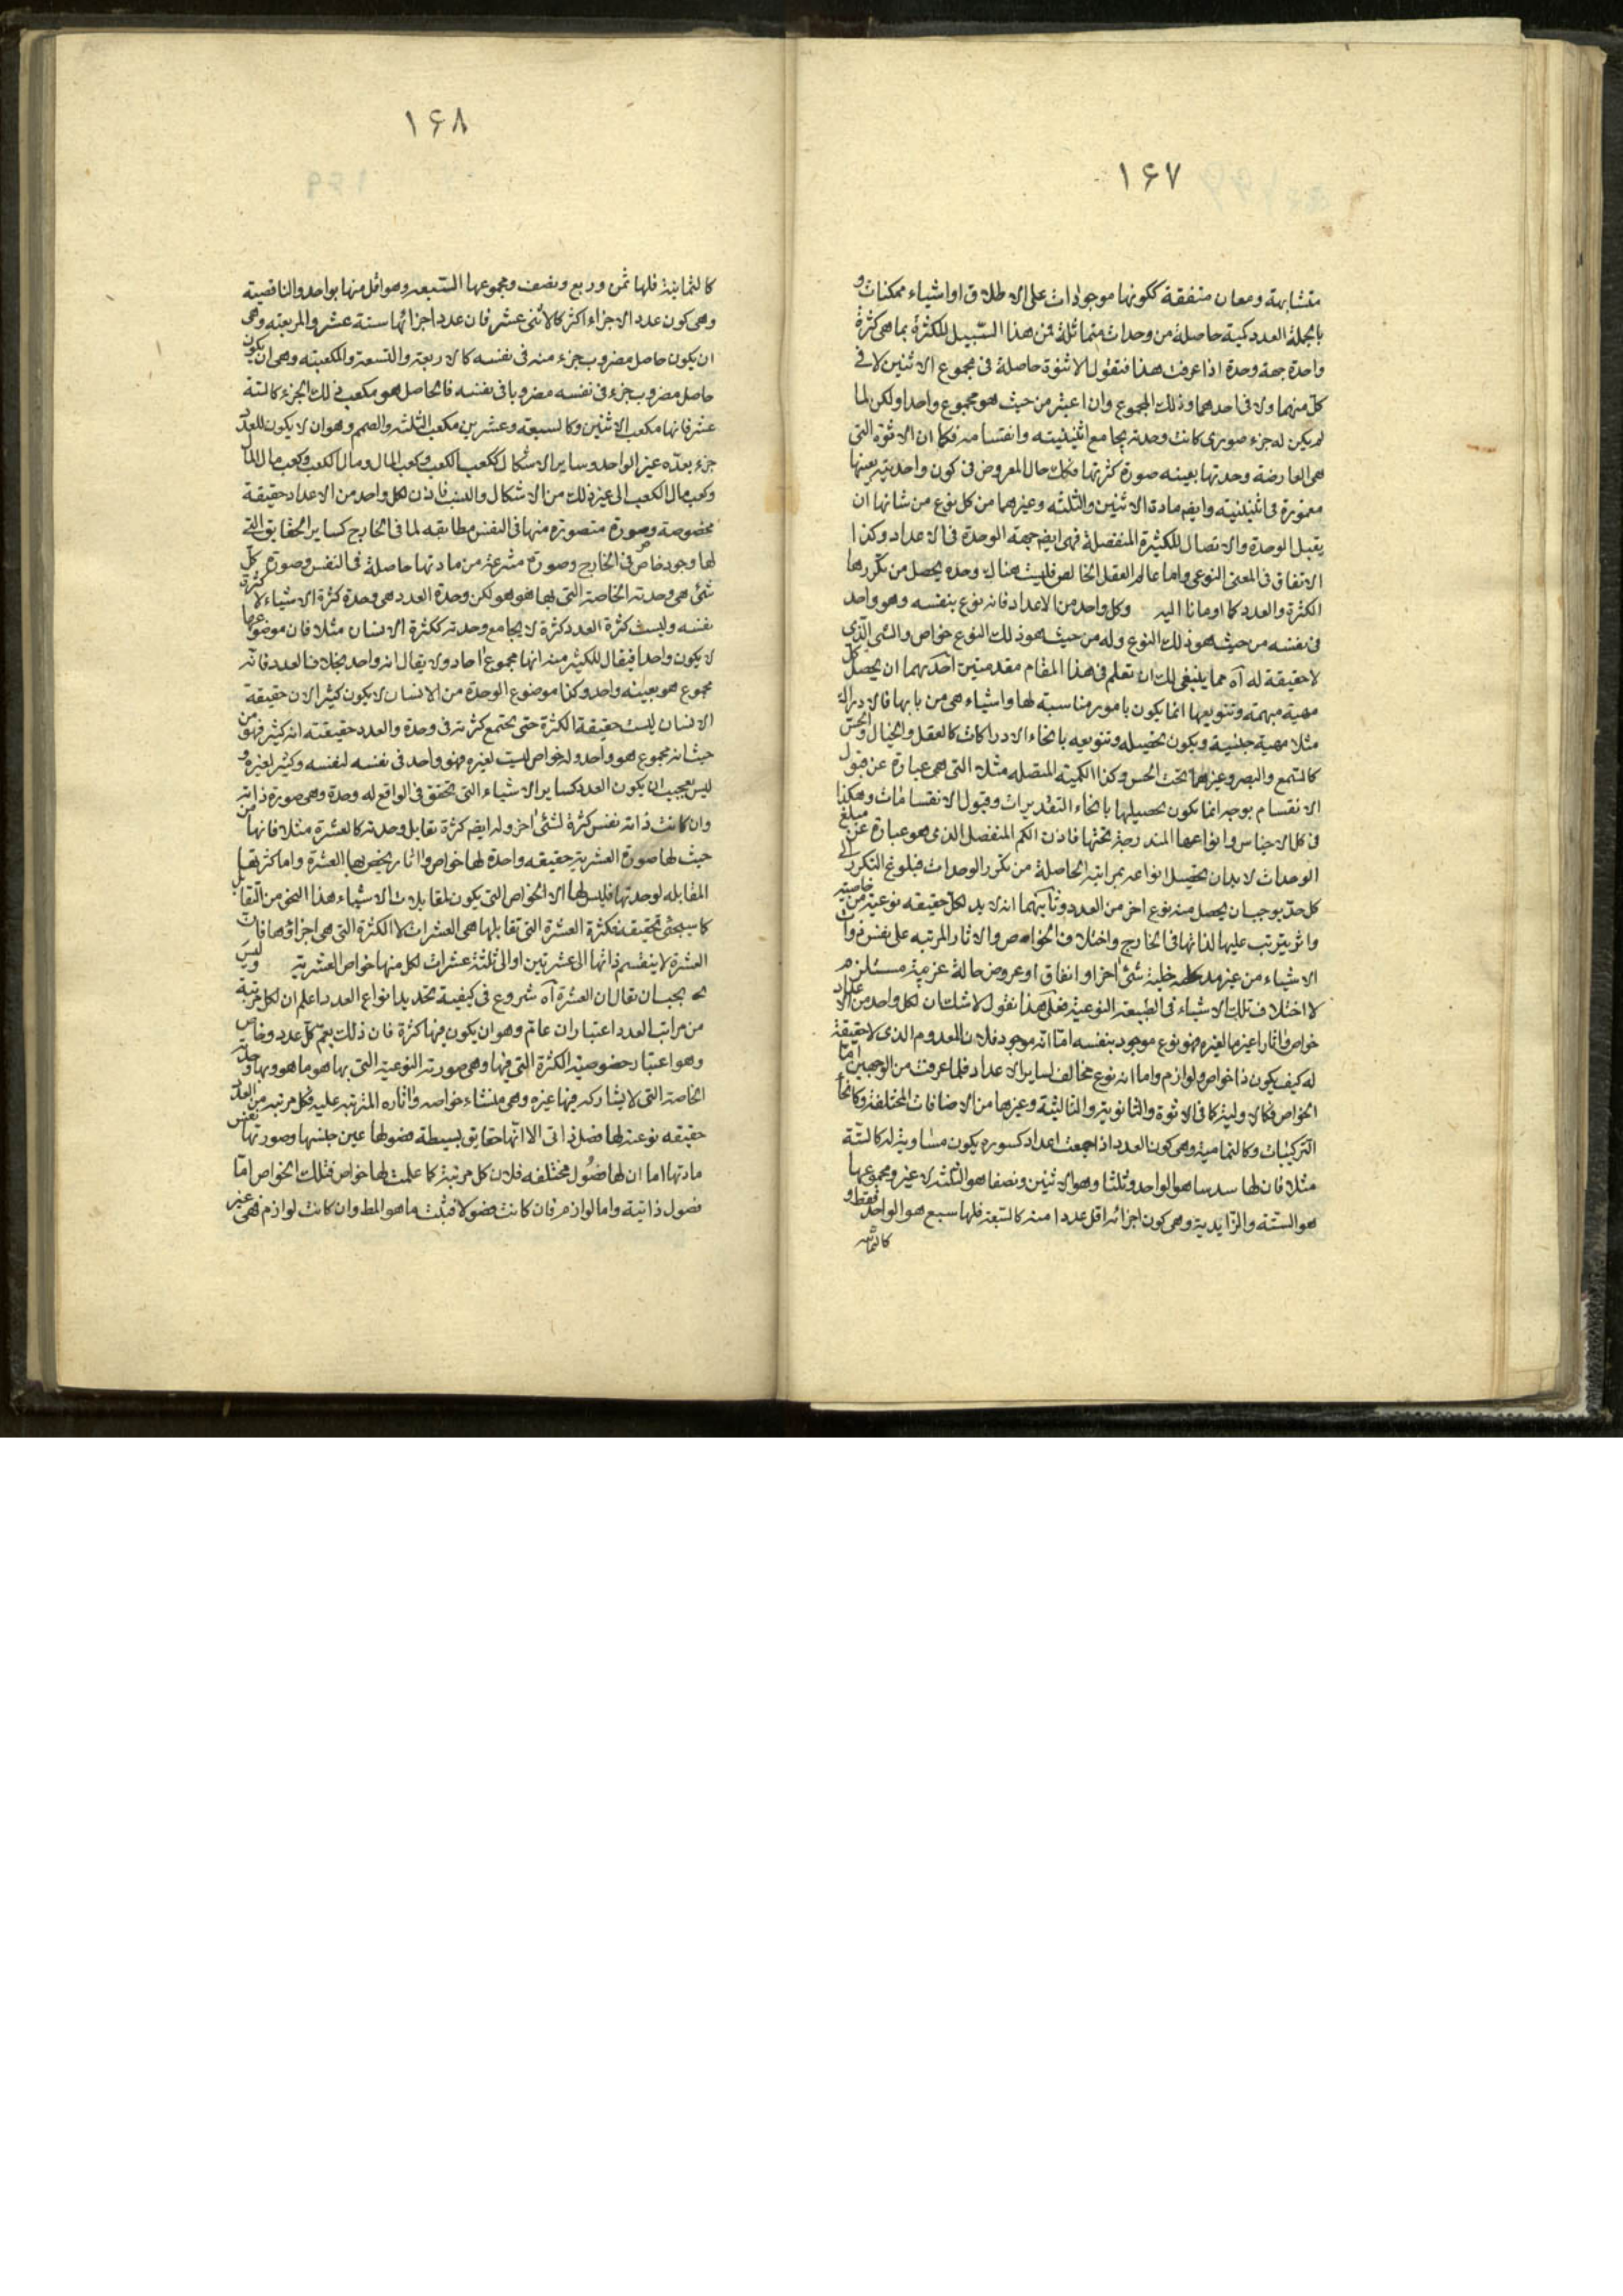 ۱۶۷
متشابهة ومعان متفقة ككونها موجودات على الاطلاق او اشياء ممكنات و
بالجملة العدد كمية حاصلة من وحدات متماثلة فمن هذا السبيل للكثرة بما هى كثرة
واحدة جهة وحدة اذا عرفت هذا فنقول الاثنوة حاصلة فى مجموع الاثنين لا فى
كل منهما ولا فى احدهما وذلك المجموع وان اعتبر من حيث هو مجموع واحدا ولكن لما
لم يكن له جزء صورى كانت وحدته يجامع اثنينيته وانقسامه فكما ان الاثنوة التى
هى العارضة وحدتها بعينه صورة كثرتها فكك حال المعروض فى كون واحديته بعينها
مغمورة فى اثنينيته وايضم مادة الاثنين والثلثه وغيرهما من كل نوع من شانها ان
يقبل الوحدة والاتصال للكثيرة المنفصلة فهى ايضم جهة الوحدة فى الاعداد وكذا
الاتفاق فى المعنى النوعى واما عالم العقل الخالص فليست هناك وحده يحصل من تكررها
الكثرة والعدد كما اومانا اليه وكل واحد من الاعداد فانه نوع بنفسه وهو واحد
فى نفسه من حيث هو ذلك النوع وله من حيث هو ذلك النوع خواص والشى الذى
لا حقيقة له آه مما ينبغى لك ان تعلم فى هذا المقام مقدمتين احدىهما ان يحصل كل
مهية مبهمة وتنويعها انما يكون بامور مناسبة لها واشياء هى من بابها فالادراك
مثلا مهية جنسية ويكون تحصيله وتنويعه بانحاء الادراكات كالعقل والخيال والحس
كالسمع والبصر وغيرهما تحت الحس وكذا الكمية المتصله مثلا التى هى عبارة عن قبول
الانقسام بوجه انما يكون تحصيلها بانحاء التقديرات وقبول الانقسامات وهكذا
فى كل الاجناس وانواعها المندرجة تحتها فاذن الكم المنفصل الذى هو عبارة عن مبلغ
الوحدات لابد ان يحصل انواعه بمراتبه الحاصلة من تكرر الوحدات فبلوغ التكرر الى
كل حد يوجب ان يحصل منه نوع اخر من العدد وثانيتهما انه لابد لكل حقيقه نوعية من خاصية
واثر يترتب عليها لذاتها فى الخارج واختلاف الخواص والاثار المرتبه على نفس ذوات
الاشياء من غير مدخلية شئ اخر او اتفاق او عروض حالة غريبة مستلزم
لاختلاف تلك الاشياء فى الطبيعة النوعية فعلى هذا نقول لا شك ان لكل واحد من الاعداد
خواص واثارا غير ما لغيره فهو نوع موجود بنفسه اما انه موجود فلان المعدوم الذى لا حقيقة
له كيف يكون ذا خواص ولوازم واما انه نوع مخالف لساير الاعداد فلما عرفت من الوجهين اما
الخواص فكالاولية كما فى الاثوة والثانوية والثالثية وغيرها من الاضافات المختلفة وكانحاء
التركيبات وكالتمامية وهى كون العدد اذا جمعت اعداد كسوره يكون مساوية له كالستة
مثلا فان لها سدسا هو الواحد وثلثا وهو الاثنين ونصفا هو الثلثه لا غير ومجموعها
هو الستة والزايدية وهى كون اجزائه اقل عددا منه كالسبعة فلها سبع هو الواحد فقط و
كالثمانية
۱۶۸
كالثمانية فلها ثمن وربع ونصف ومجموعها السبعه وهو اقل منها بواحد والناقصية
وهى كون عدد الاجزاء اكثر كالاثنى عشر فان عدد اجزائها ستة عشر والمربعيه وهى
ان يكون حاصل مضروب جزء منه فى نفسه كالاربعة والتسعة والمكعبيه وهى ان يكون
حاصل مضروب جزء فى نفسه مضروبا فى نفسه فالحاصل هو مكعب ذلك الجزء كالستة
عشر فانها مكعب الاثنين وكالسبعة وعشرين مكعب الثلثه والصمم وهو ان لا يكون للعدد
جزء يعده غير الواحد وساير الاشكال ككعب الكعب وكعب المال ومال الكعب وكعب مال المال
وكعب مال الكعب الى غير ذلك من الاشكال والنسب فاذن لكل واحد من الاعداد حقيقة
مخصوصة وصورة متصورة منها فى النفس مطابقه لما فى الخارج كساير الحقايق التى
لها وجود خاص فى الخارج وصورة منتزعة من مادتها حاصلة فى النفس وصورة كل
شئ هى وحدته الخاصة التى بها هو هو لكن وحدة العدد هى وحدة كثرة الاشياء لا كثرة
نفسه وليست كثرة العدد كثرة لا يجامع وحدته ككثرة الانسان مثلا فان موضوعها
لا يكون واحدا فيقال للكثير منه انها مجموع احاد ولا يقال انه واحد بخلاف العدد فانه
مجموع هو بعينه واحد وكذا موضوع الوحدة من الانسان لا يكون كثيرا لان حقيقة
الانسان ليست حقيقة الكثرة حتى يجتمع كثرته فى وحدة والعدد حقيقته انه كثير فهو من
حيث انه مجموع هو واحد وله خواص ليست لغيره فهو واحد فى نفسه لنفسه وكثير لغيره و
ليس بعجيب ان يكون العدد كساير الاشياء التى تحقق فى الواقع له وحدة وهى صورة ذاته
وان كانت ذاته نفس كثرة لشئ اخر وله ايضم كثرة تقابل وحدته كالعشرة مثلا فانها من
حيث لها صورة العشرية حقيقه واحدة لها خواص واثار يخص بها العشرة واما كثرتها
المقابله لوحدتها فليس لها الا الخواص التى يكون لمقابلات الاشياء هذا النحو من التقابل
كما سيجئ تحقيقه فكثرة العشرة التى تقابلها هى العشرات لا الكثرة التى هى اجزاؤها فان
العشرة لا ينقسم ذاتها الى عشرتين او الى ثلثة عشرات لكل منها خواص العشرية وليس
يجب ان يقال ان العشرة آه شروع فى كيفية تحديد انواع العدد اعلم ان لكل مرتبة
من مراتب العدد اعتباران عام وهو ان يكون فيها كثرة فان ذلك يعم كل عدد وخاص
وهو اعتبار خصوصية الكثرة التى فيها وهى صورته النوعية التى بها هو ما هو وبها
الخاصة التى لا يشاركه فيها غيره وهى منشاء خواصه واثاره المترتبه عليه فكل مرتبه من العدد
حقيقه نوعية لها فصل ذاتى الا انها حقايق بسيطة فصولها عين جنسها وصورتها نفس
مادتها اما ان لها فصول مختلفه فلان كل مرتبة كما علمت لها خواص فتلك الخواص اما
فصول ذاتية واما لوازم فان كانت فصولا فثبت ما هو المط وان كانت لوازم فهى غير